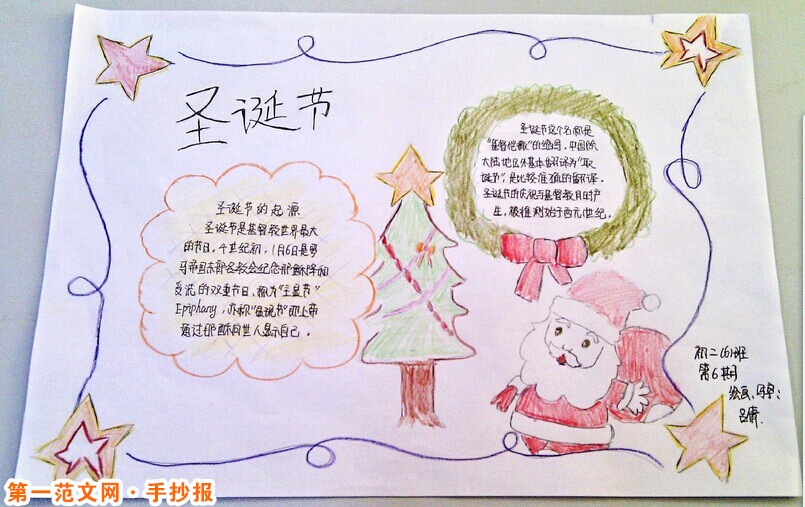 圣诞节
圣诞节的起源
圣诞节是基督教世界最大
的节日。4世纪初，1月6日是罗
马帝国东部各教会纪念耶稣降和
受洗的双重节日、称为"主显节"
Epiphany，亦称"显现节"即上帝
通过耶稣向世人显示自己。
圣诞节这个名称是
"基督弥撒"的缩写。中国除
大陆地区外基本翻译为"耶
诞节"，是比较准确的翻译。
圣诞节的庆祝与基督教同时产
生，被推测始于西元1世纪。
初二(6)班
第6期
绘画、
第一范文网·手抄报